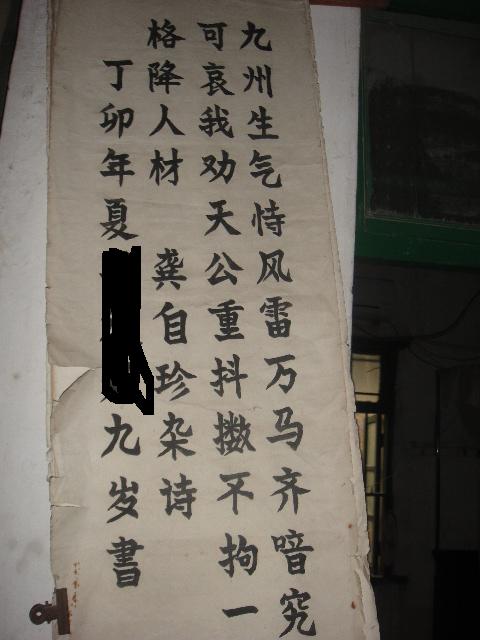 九州生气恃风雷万马齐喑究
可哀我劝天公重抖擞不拘一
格降人材 龚自珍杂诗
丁卯年夏
九岁書